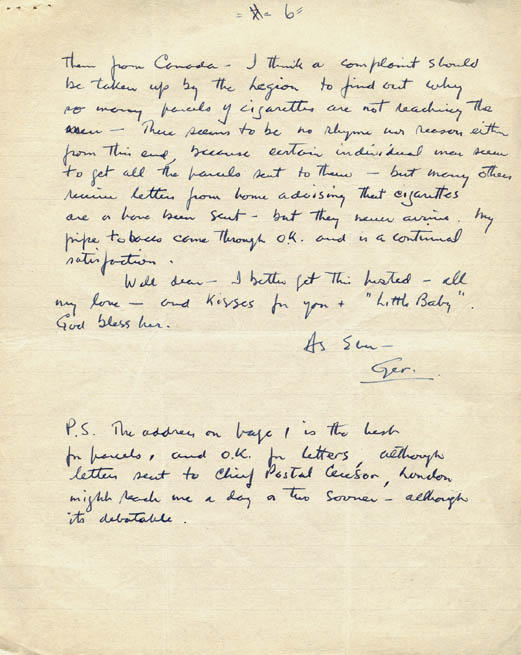 = # - 6 =
them from Canada - I think a complaint should
be taken up by the Legion to find out why
so many parcels of cigarettes are not reaching the
men - There seems to be no rhyme nor reason either
from this end, because certain individual men seem
to get all the parcels sent to them - but many others
receive letters from home advising that cigarettes
are or have been sent - but they never arrive. My
pipe tobacco come through O.K. and is a continual
satisfaction.
Well dear - I better get this posted - all
my love - and kisses for you + "Little Baby".
God bless her.
As Ever -
Ger.
P.S. The address on page 1 is the best
for parcels, and O.K. for letters, although
letters sent to Chief Postal Censor, London
might reach me a day or two sooner - although
its debatable.